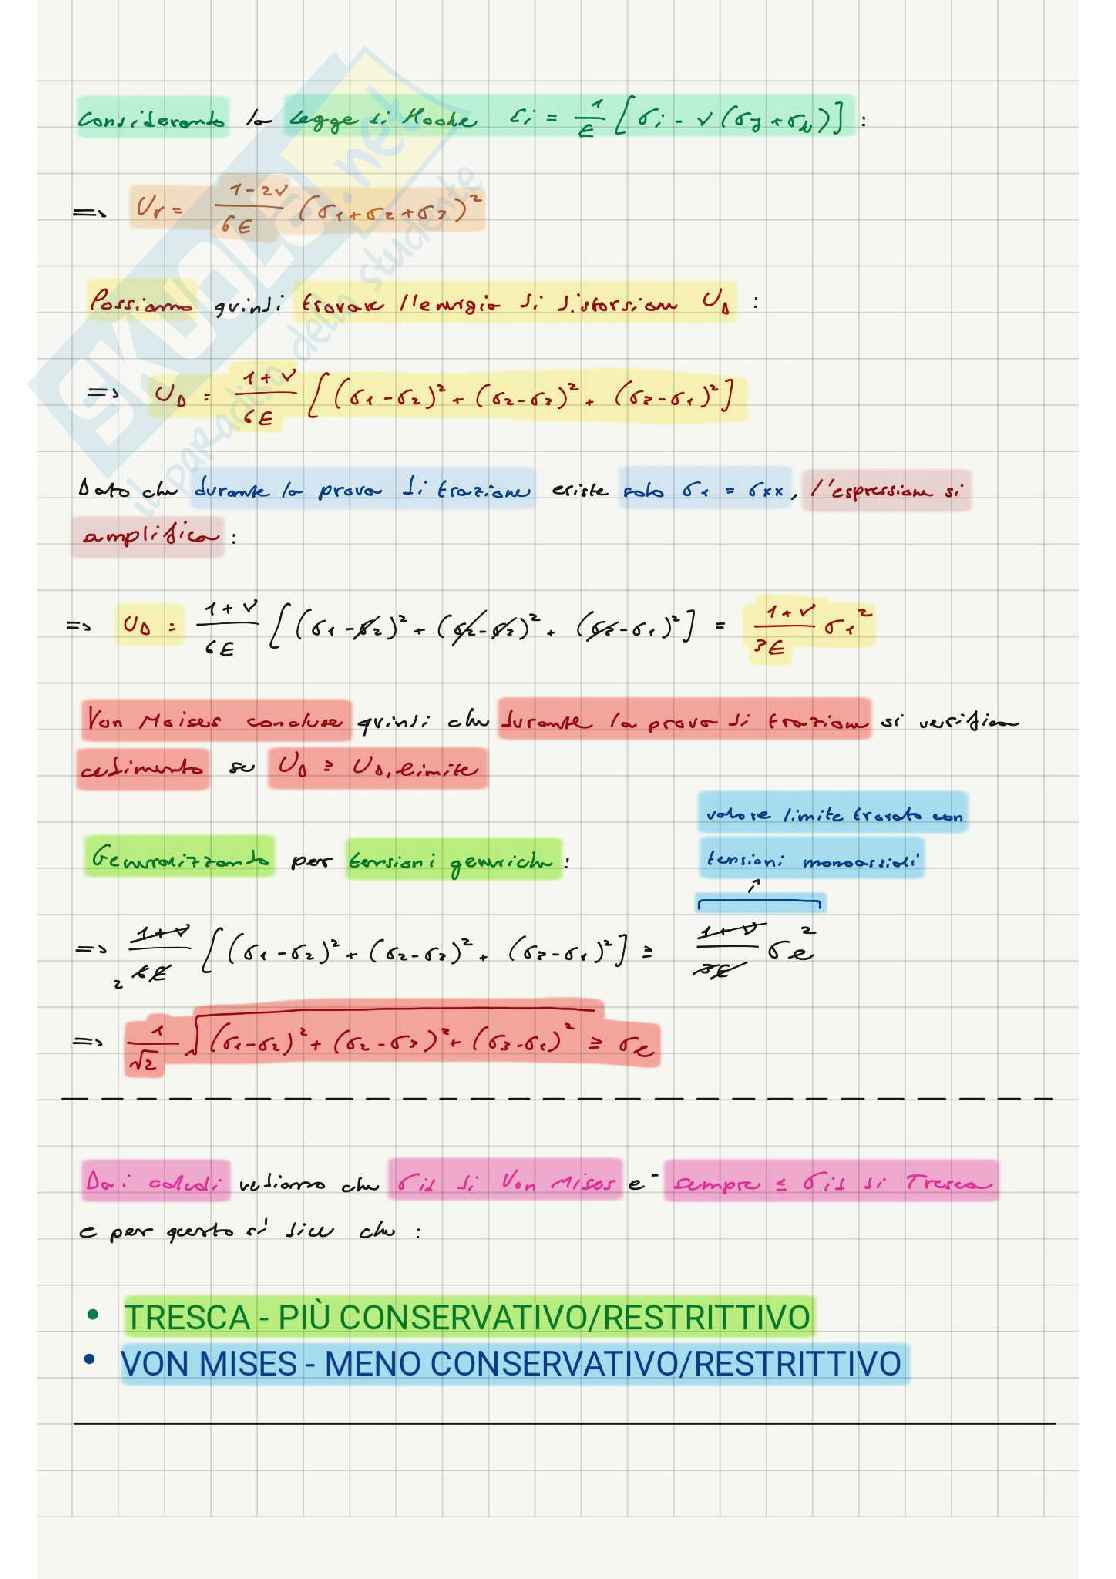 Considerando la legge di Hooke εi = 1/E [σi - ν(σj+σk)] :
=> Ur = 1-2ν/6E (σ1+σ2+σ3)²
Possiamo quindi trovare l'energia di distorsione UD :
=> UD = 1+ν/6E [(σ1-σ2)² + (σ2-σ3)² + (σ3-σ1)²]
Dato che durante la prova di trazione esiste solo σ1 = σxx, l'espressione si
amplifica :
=> UD = 1+ν/6E [(σ1-σ2)² + (σ2-σ3)² + (σ3-σ1)²] = 1+ν/3E σ1²
Von Moises concluse quindi che durante la prova di trazione si verifica
cedimento se UD ≥ UD,limite
valore limite trovato con
Generalizzando per tensioni generiche : tensioni monoassiali
=> 1+ν/2 6E [(σ1-σ2)² + (σ2-σ3)² + (σ3-σ1)²] ≥ 1+ν/3E σe²
=> 1/√2 √(σ1-σ2)² + (σ2-σ3)² + (σ3-σ1)² ≥ σe
Dai calcoli vediamo che σid di Von Mises e' sempre ≤ σid di Tresca
e per questo si dice che :
• TRESCA - PIÙ CONSERVATIVO/RESTRITTIVO
• VON MISES - MENO CONSERVATIVO/RESTRITTIVO
SKUOLA.net
il paradiso dello studente